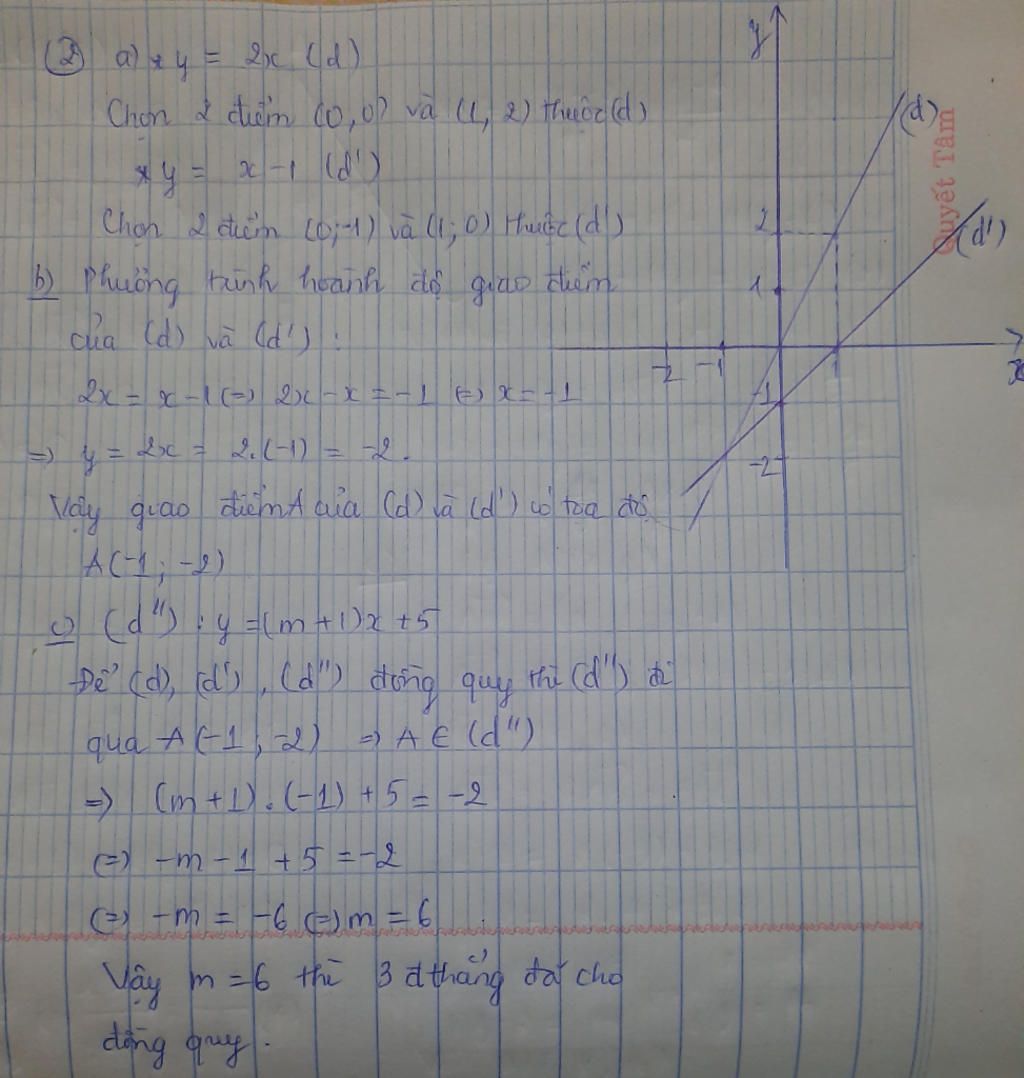 ② a) * y = 2x (d)
Chọn 2 điểm (0,0) và (1, 2) thuộc (d)
* y = x - 1 (d')
Chọn 2 điểm (0;-1) và (1; 0) thuộc (d')
b) Phương trình hoành độ giao điểm
của (d) và (d') :
2x = x - 1 (=) 2x - x = -1 (=) x = -1
=) y = 2x = 2.(-1) = -2.
Vậy giao điểm A của (d) và (d') có tọa độ
A(-1; -2)
c) (d'') : y = (m+1)x + 5
Để (d), (d'), (d'') đồng quy thì (d'') đi
qua A(-1; -2) => A ∈ (d'')
=) (m+1).(-1) + 5 = -2
(=) -m - 1 + 5 = -2
(=) -m = -6 (=) m = 6
Vậy m = 6 thì 3 đ thẳng đã cho
đồng quy.
y
(d)
Quyết Tâm
2
(d')
1
-2 -1 1
x
-1
-2